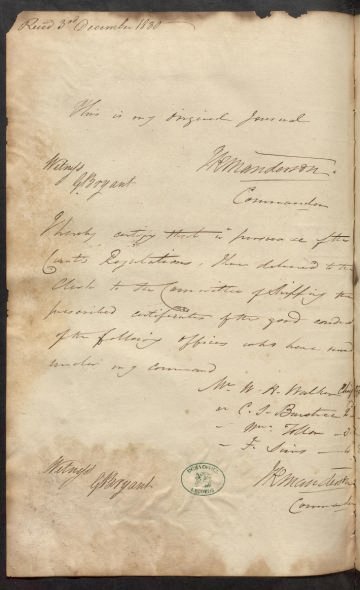 Recd 3rd December 1830
This is my original Journal
Witness
G Bryant
Manderson
Commander
I hereby certify that in pursuance of the
Courts Regulations, I have delivered to the
Clerk to the Committee of Shipping the
prescribed certificates of the good conduct
of the following officers who have served
under my command
Mr W. H. Walker Chief
C. S.
Wm
F.
Witness
G Bryant
INDIA OFFICE
RECORDS
Manderson
Commander